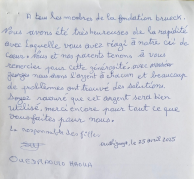 A tous les membres de la fondation brueck.
Nous avons été très heureuses de la rapidité
avec laquelle vous avez réagi à notre cri de
cœur. Nous et nos parents tenons à vous
remercier pour cette générosité. avec
georges nous dans l'argent à chacun et beaucoup
de problèmes ont trouvé des solutions.
Soyez rassuré que cet argent sera bien
utilisé, merci encore pour tout ce que
vous faites pour nous.
La responsable des filles.
le 25 avril 2025
OUEDRAOGO